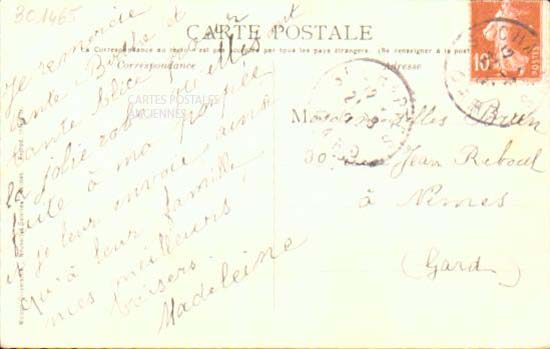 301465
CARTE POSTALE
La Correspondance au recto n'est pas acceptée par tous les pays étrangers (Se renseigner à la poste)
Correspondance
Adresse
Je remercie
tante Berthe et
tante Alice
la jolie robe qu'elles ont
faite à ma poupée
je leur envoie ainsi
qu'à leur famille
mes meilleurs
baisers
Madeleine
CARTES POSTALES
ANCIENNES
10
Mesdemoiselles Brun
30 Jean Reboul
à Nîmes
(Gard)